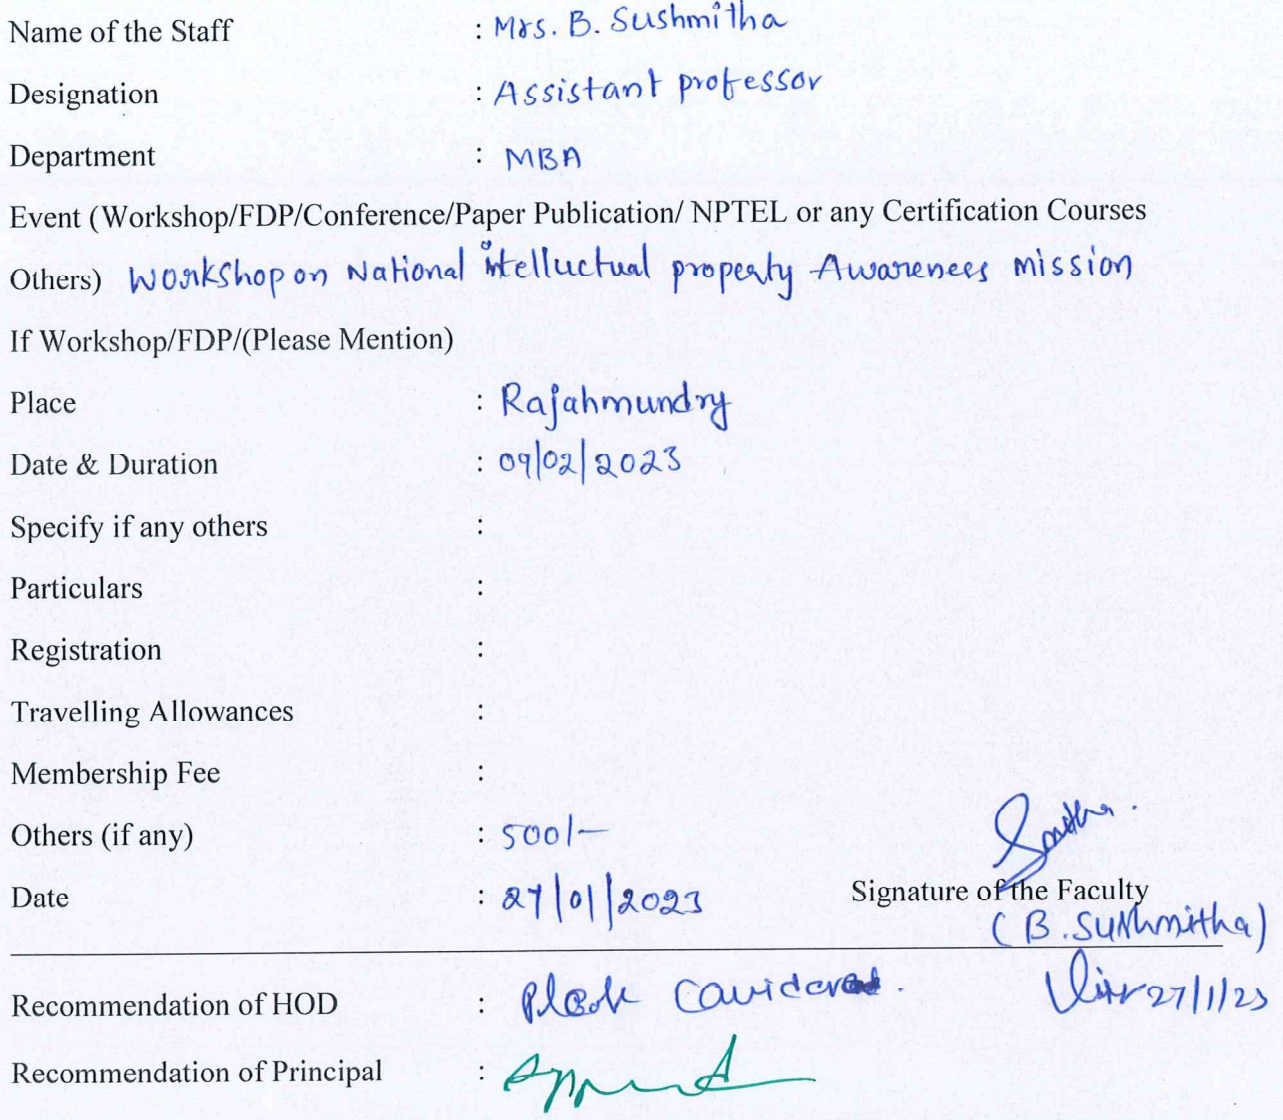 Name of the Staff : Mrs. B. Sushmitha
Designation : Assistant professor
Department : MBA
Event (Workshop/FDP/Conference/Paper Publication/ NPTEL or any Certification Courses
Others) Workshop on National intelluctual property Awarenees mission
If Workshop/FDP/(Please Mention)
Place : Rajahmundry
Date & Duration : 09/02/2023
Specify if any others :
Particulars :
Registration :
Travelling Allowances :
Membership Fee :
Others (if any) : 500/-
Date : 27/01/2023 Signature of the Faculty
(B. Sushmitha)
Recommendation of HOD : 27/1/23
Recommendation of Principal : Approved